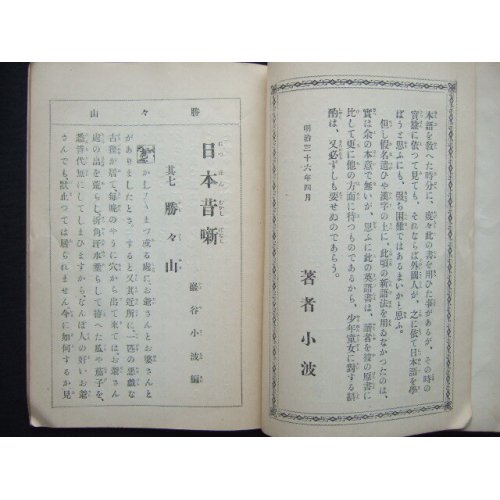 本語を教へた時分に、度々此の書を用ひた事があるが、その時の
實驗に依つて見ても、それならば外國人が、之に依て日本語を學
ばうと思ふにも、强ち困難ではあるまいかと思ふ。
但し假名遣ひや漢字の上に、此頃の新語法を用ゐなかつたのは、
實は余の本意で無いが、思ふに此の英語書は、讀者を彼の原書に
比して更に他の方面に待つものであるから、少年童女に對する斟
酌は、又必ずしも要せぬのであらう。
明治三十六年四月
著者 小波
勝々山
日本昔噺
につほんむかしばなし
其七 勝々山
巖谷小波編
かし〱或る處にお爺さんとお婆さんと
がありましたとさ。すると又其近所に一匹の惡戯な
古狸が居て、每晩のやうに穴から出て來てはお爺さん
處の畑を荒らし、折角丹
して置いた瓜や茄子を、
にしてしまひますからなんぼ人の好いお爺
さんでも、默止つては居られません今に如何するか見